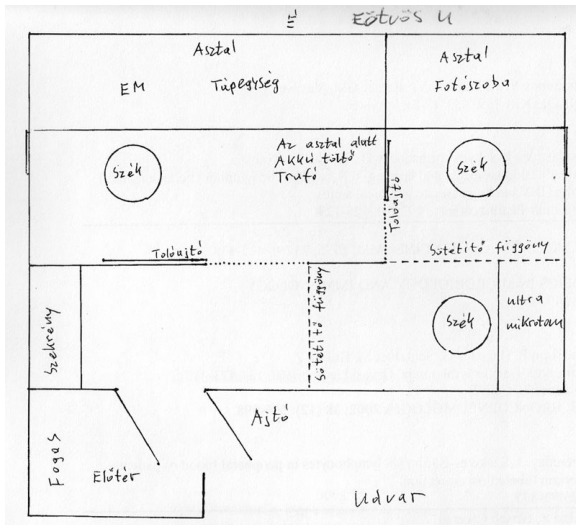 Eötvös U
Asztal
EM Tápegység
Asztal
Fotószoba
Szék
Az asztal alatt
Akku töltő
Trafó
Tolóajtó
Szék
Tolóajtó
Sötétítő függöny
Szekrény
Sötétítő függöny
Szék
ultra
mikrotom
Fogas
Ajtó
Előtér
Udvar